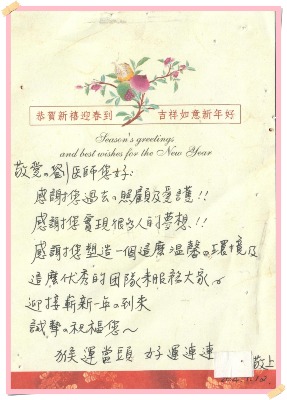 恭賀新禧迎春到 吉祥如意新年好
Season's greetings
and best wishes for the New Year
敬愛的劉醫師您好:
感謝您過去の照顧及愛護!!
感謝您實現很多人的夢想!!
感謝您塑造一個這麼溫馨の環境及
這麼優秀的團隊來服務大家~
迎接嶄新一年の到來
誠摯の祝福您~
猴運當頭 好運連連
敬上